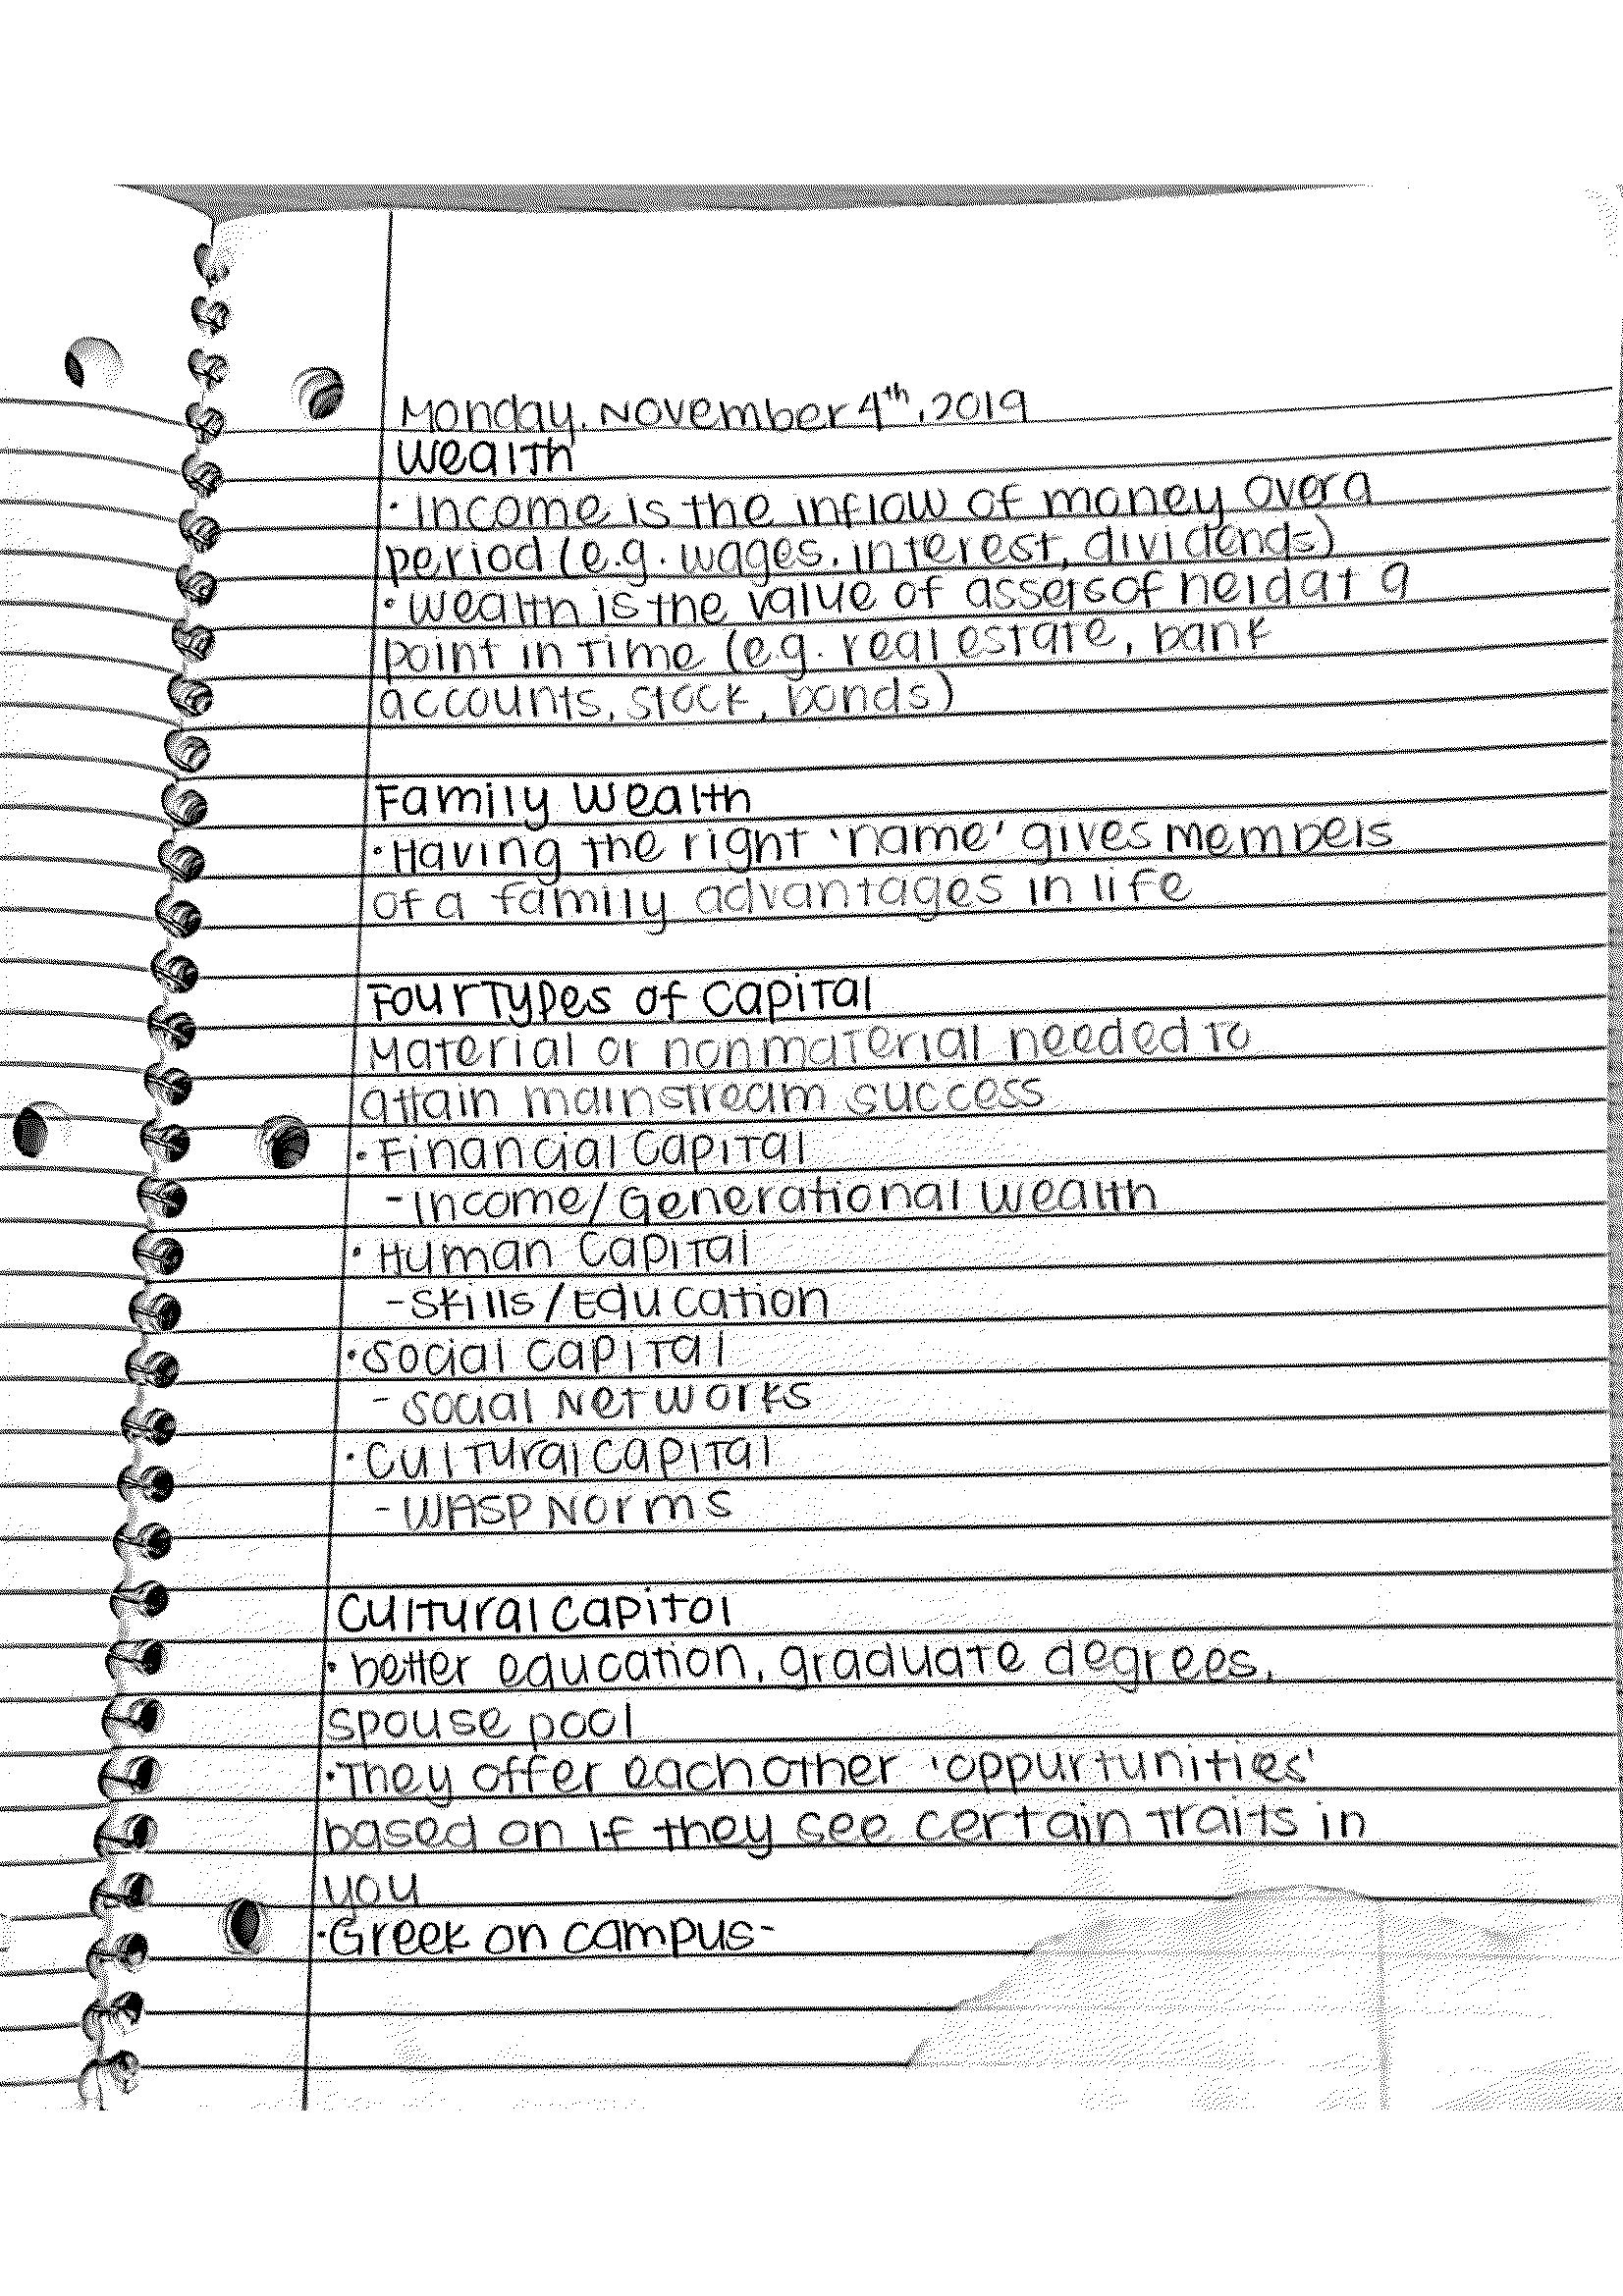 Monday, November 4th, 2019
Wealth
· Income is the inflow of money over a
period (e.g. wages, interest, dividends)
· Wealth is the value of assets of held at a
point in time (e.g. real estate, bank
accounts, stock, bonds)
Family Wealth
· Having the right 'name' gives members
of a family advantages in life
Four Types of Capital
Material or nonmaterial needed to
attain mainstream success
· Financial Capital
- Income/Generational Wealth
· Human Capital
- Skills/Education
· Social Capital
- Social Networks
· Cultural Capital
- WASP Norms
Cultural Capitol
· better education, graduate degrees,
spouse pool
· They offer each other 'oppurtunities'
based on if they see certain traits in
you
· Greek on campus-